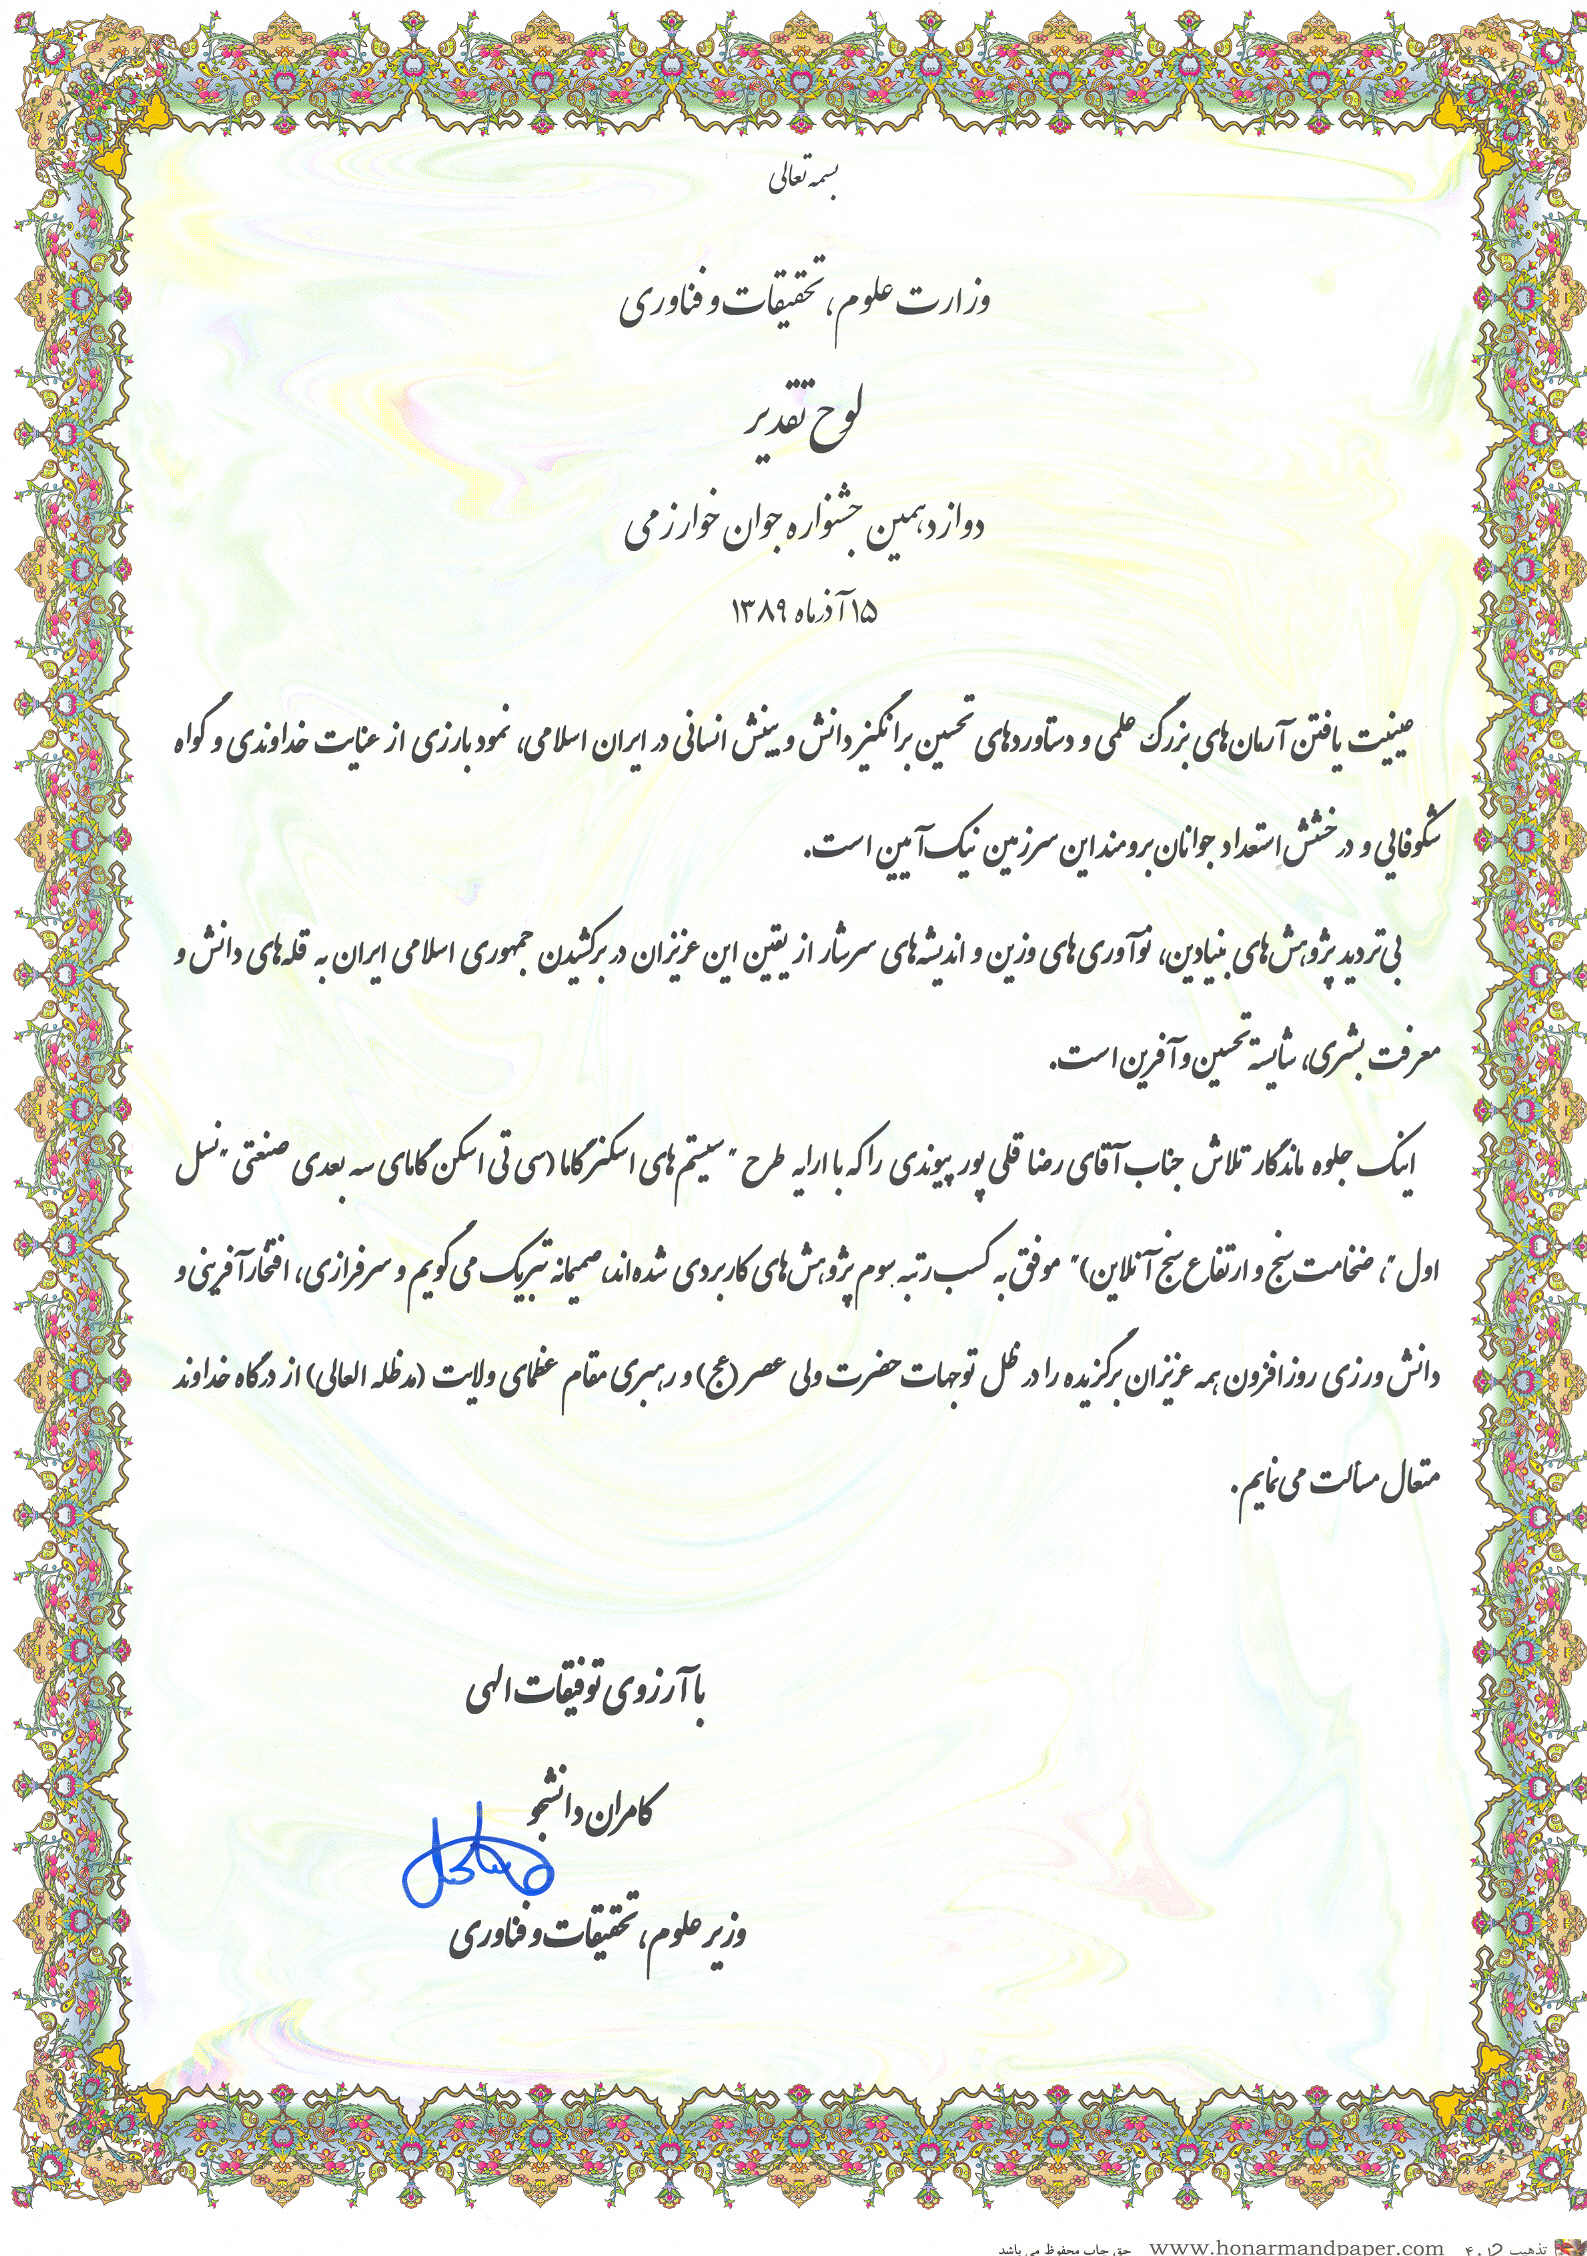 بسمه تعالی
وزارت علوم، تحقیقات و فناوری
لوح تقدیر
دوازدهمین جشنواره جوان خوارزمی
۱۵ آذرماه ۱۳۸۹
عینیت یافتن آرمان‌های بزرگ علمی و دستاوردهای تحسین برانگیز دانش و بینش انسانی در ایران اسلامی، نمود بارزی از عنایت خداوندی و گواه
شکوفایی و درخشش استعداد جوانان برومند این سرزمین نیک آیین است.
بی‌تردید پژوهش‌های بنیادین، نوآوری‌های وزین و اندیشه‌های سرشار از یقین این عزیزان در برکشیدن جمهوری اسلامی ایران به قله‌های دانش و
معرفت بشری، شایسته تحسین و آفرین است.
اینک جلوه ماندگار تلاش جناب آقای رضا قلی پور پیوندی را که با ارایه طرح "سیستم‌های اسکنر گاما (سی تی اسکن گامای سه بعدی صنعتی "نسل
اول"، ضخامت سنج و ارتفاع سنج آنلاین)" موفق به کسب رتبه سوم پژوهش‌های کاربردی شده‌اند، صمیمانه تبریک می‌گویم و سرفرازی، افتخارآفرینی و
دانش ورزی روزافزون همه عزیزان برگزیده را در ظل توجهات حضرت ولی عصر (عج) و رهبری مقام عظمای ولایت (مدظله العالی) از درگاه خداوند
متعال مسالت می‌نمایم.
با آرزوی توفیقات الهی
کامران دانشجو
وزیر علوم، تحقیقات و فناوری
تذهیب ۴۰۱۵ www.honarmandpaper.com حق چاپ محفوظ می باشد